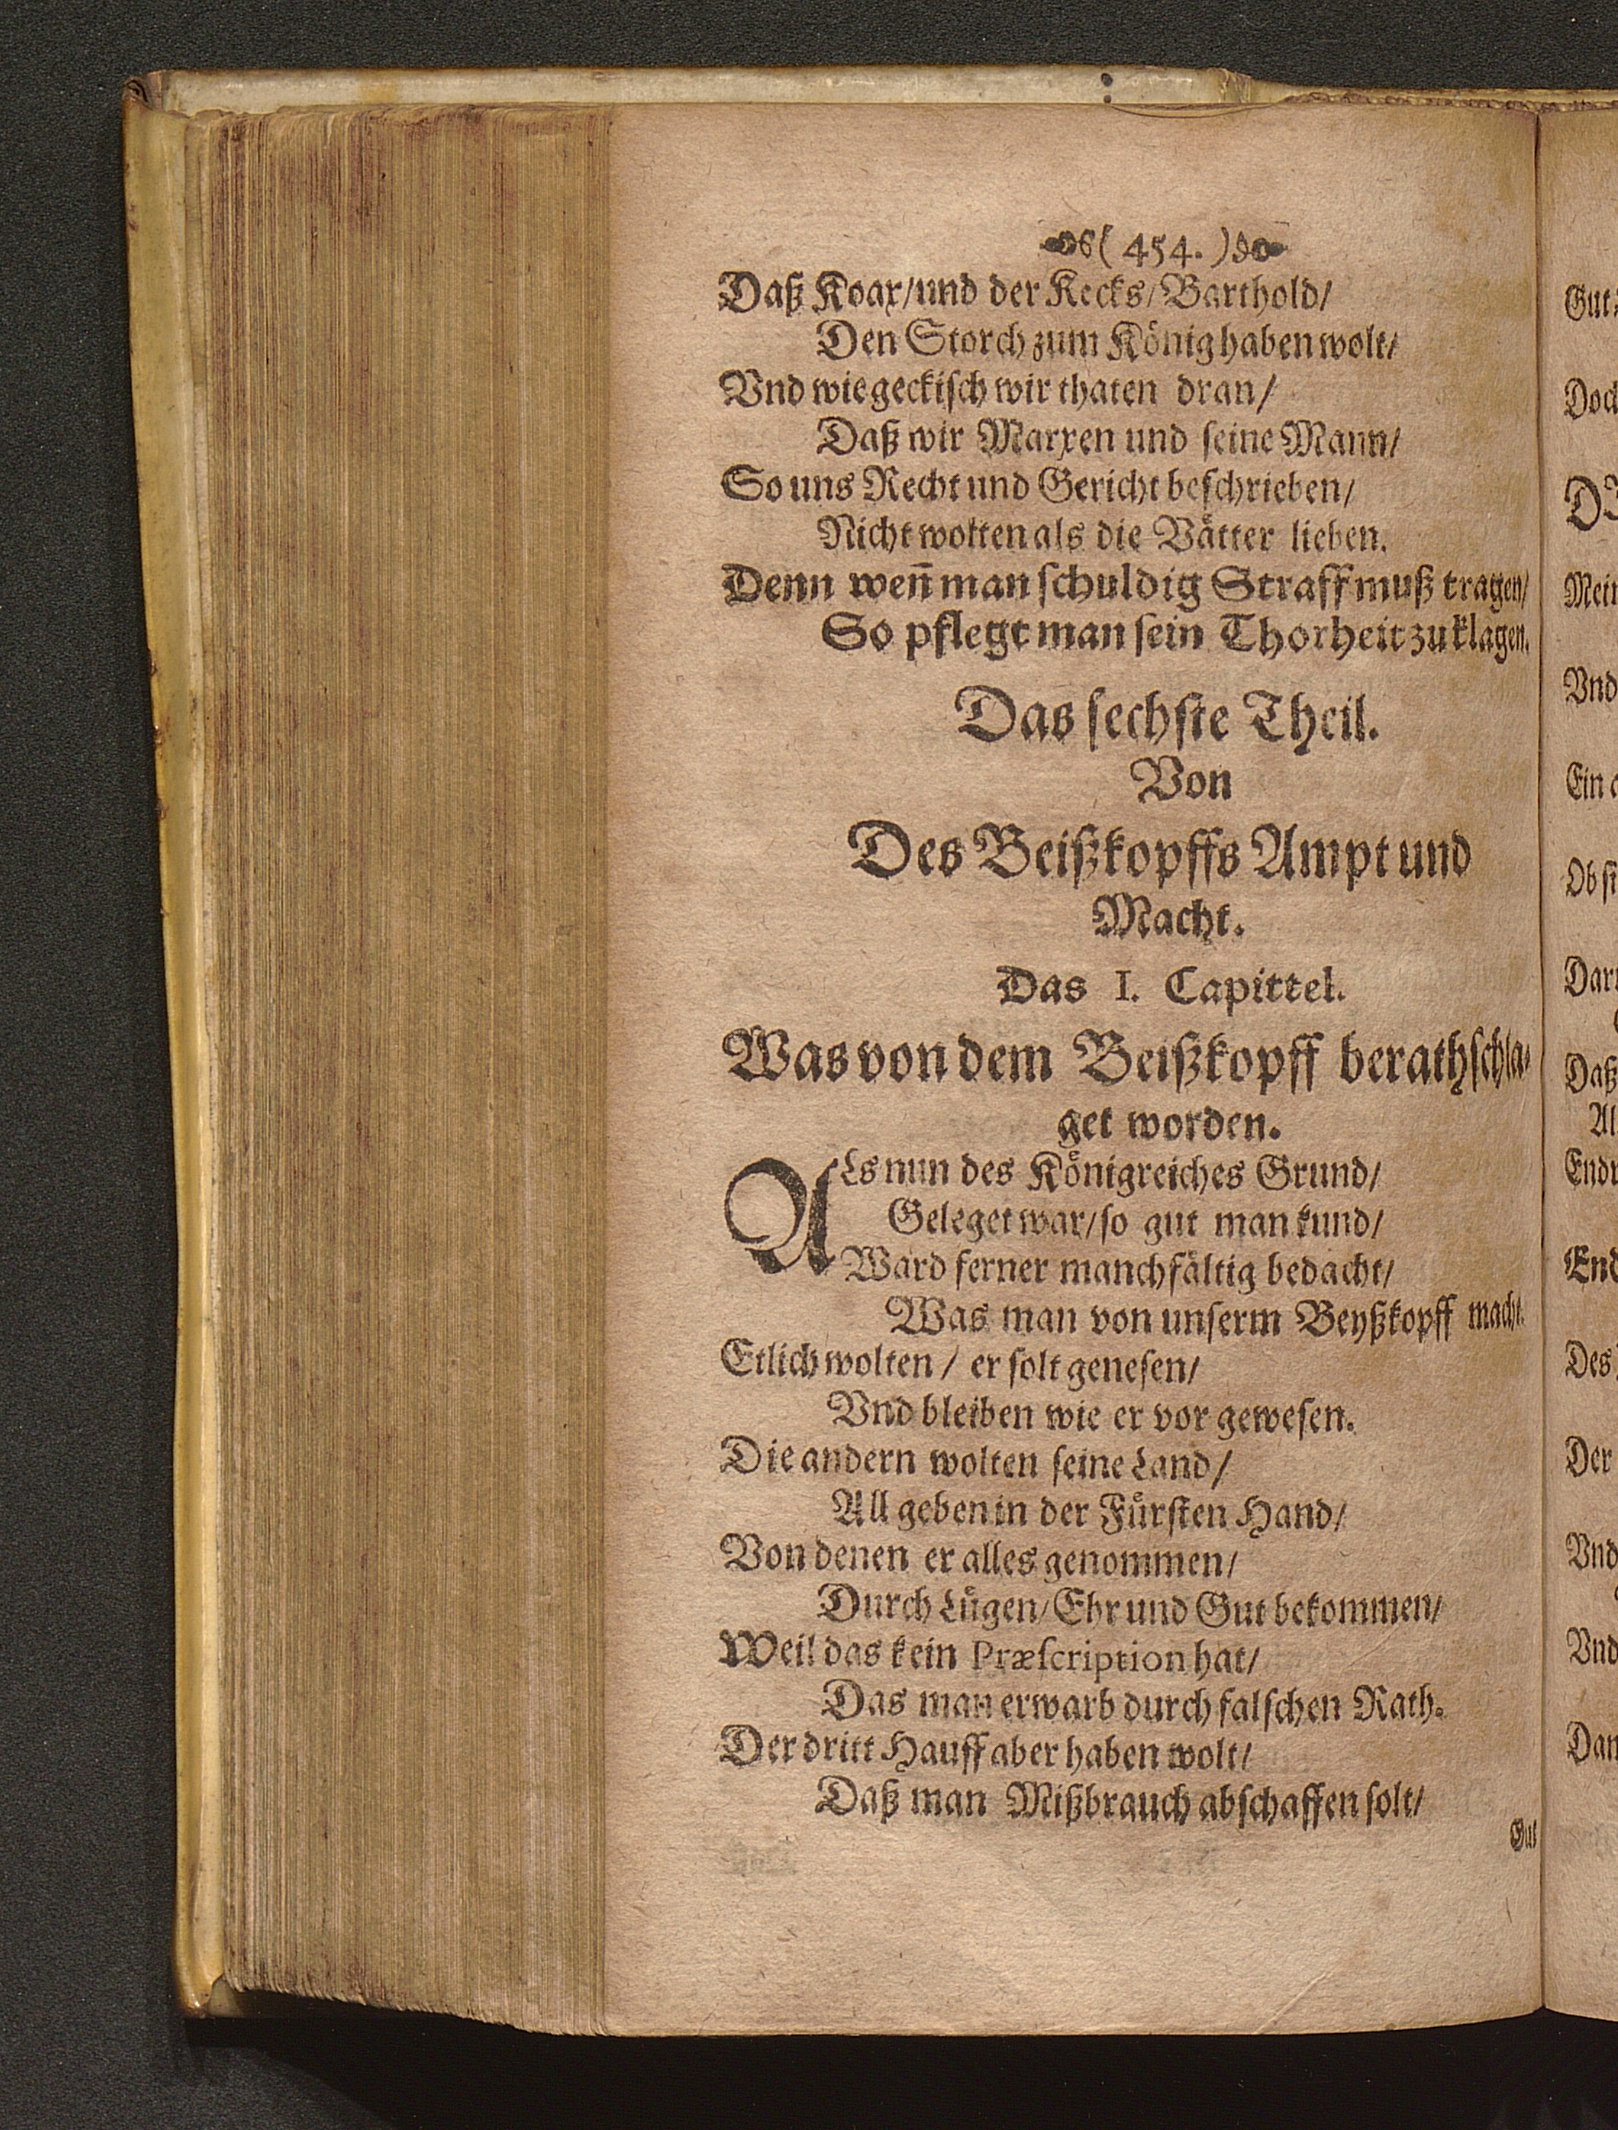 ( 454. )
Daß Koax/und der Kecks/Barthold/
Den Storch zum König haben wolt/
Vnd wie geckisch wir thaten dran/
Daß wir Marxen und seine Mann/
So uns Recht und Gericht beschrieben/
Nicht wolten als die Vätter lieben.
Denn weñ man schuldig Straff muß tragen/
So pflegt man sein Thorheit zu klagen.
Das sechste Theil.
Von
Des Beißkopffs Ampt und
Macht.
Das I. Capittel.
Was von dem Beißkopff berathschla-
get worden.
ALs nun des Königreiches Grund/
Geleget war/so gut man kund/
Ward ferner manchfältig bedacht/
Was man von unserm Beyßkopff macht.
Etlich wolten / er solt genesen/
Vnd bleiben wie er vor gewesen.
Die andern wolten seine Land/
All geben in der Fürsten Hand/
Von denen er alles genommen/
Durch Lügen/Ehr und Gut bekommen/
Weil das kein Præscription hat/
Das man erwarb durch falschen Rath.
Der dritt Hauff aber haben wolt/
Daß man Mißbrauch abschaffen solt/
Gut